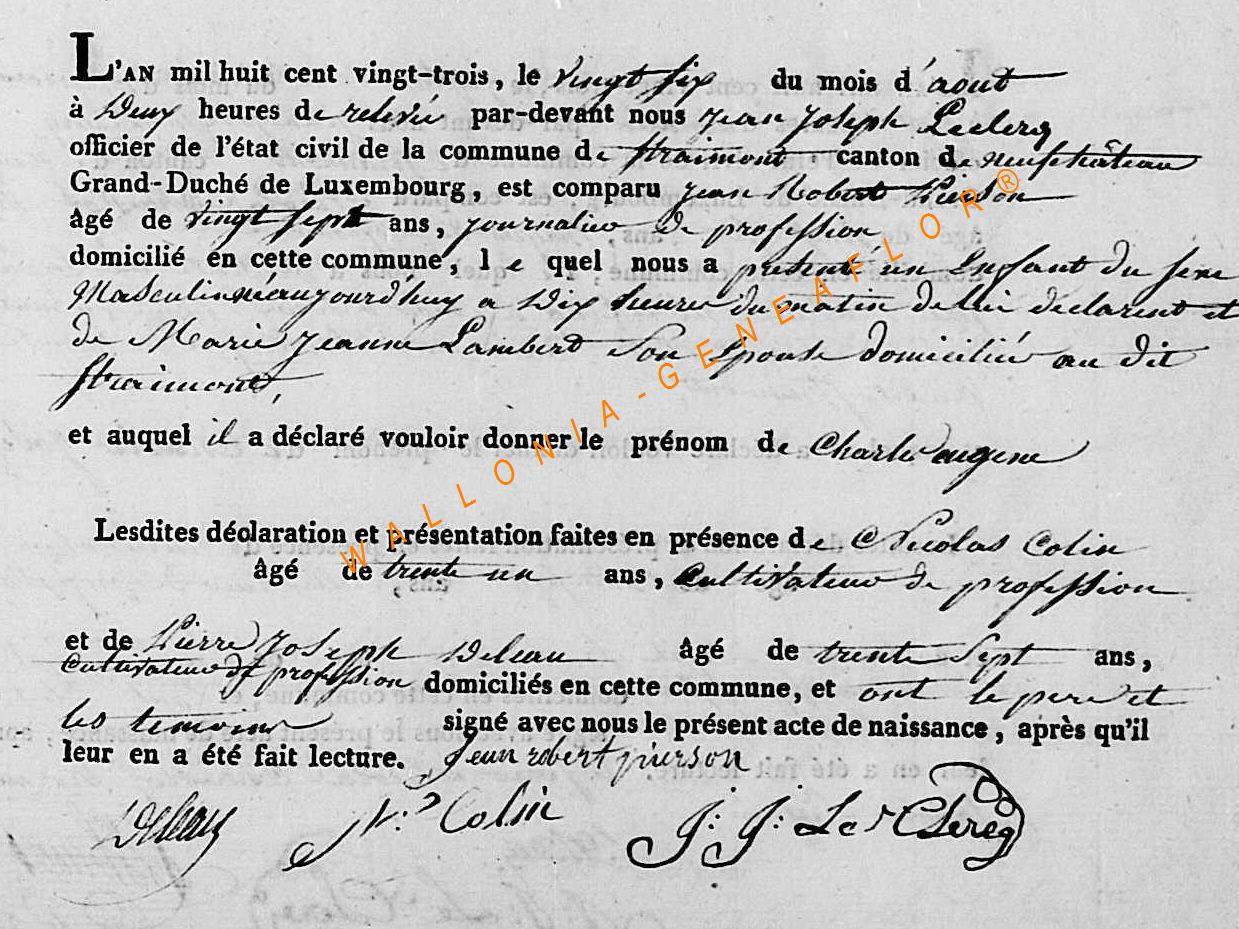 L'AN mil huit cent vingt-trois, le vingt six du mois d'aout
à Deux heures de relevée par-devant nous Jean Joseph Leclerq
officier de l'état civil de la commune de Straimont canton de neufchâteau
Grand-Duché de Luxembourg, est comparu Jean Robert Pierson
âgé de vingt sept ans, journalier de profession
domicilié en cette commune, le quel nous a presenté un Enfant du sexe
Masculin né aujourd'huy a Dix heures du matin de lui declarent et
de Marie Jeanne Lambert son Epouse domiciliée au dit
Straimont,
et auquel il a déclaré vouloir donner le prénom de Charles eugene
Lesdites déclaration et présentation faites en présence de Nicolas Colin
âgé de trente un ans, Cultivateur de profession
et de Pierre Joseph Deleau âgé de trente Sept ans,
Cultivateur de profession domiciliés en cette commune, et ont le pere et
les temoins signé avec nous le présent acte de naissance, après qu'il
leur en a été fait lecture. Jean robert pierson
Deleau N: Colin J: J: Le Clereq
WALLONIA-GENEAFLOR®